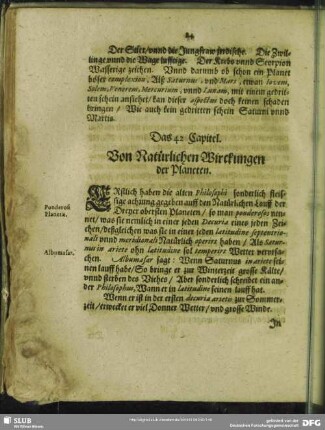 84
Der Stier/ vnnd die Jungfraw jrrdische. Die Zwil-
linge vnnd die Wage lufftige. Der Krebs vnnd Scorpion
Wässerige zeichen. Vnnd darumb ob schon ein Planet
böser complexion, Als Saturnus, vnd Mars, etwan Iovem,
Solem, Venerem, Mercurium, vnnd Lunam, mit einem gedrit-
ten schein ansiehet/ kan dieser aspectus doch keinen schaden
bringen/ Wie auch kein gedritten schein Saturni vnnd
Martis.
Das 42 Capitel.
Von Natürlichen Wirckungen
der Planeten.
Ponderosi
Planetæ.
ERstlich haben die alten Philosophi sonderlich fleis-
sige achtung gegeben auff den Natürlichen Lauff der
Dreyer obersten Planeten/ so man ponderosos nen-
net/ was sie nemlich in einer jeden Decuria eines jeden Zei-
chen/ desgleichen was sie in einer jeden latitudine septentrio-
nali vnnd meridionali Natürlich operirt haben/ Als Satur-
nus in ariete ohn latitudine sol temperirt Wetter verursa-
chen.
Albumasar.
Albumasar sagt: Wenn Saturnus in ariete sei-
nen lauff habe/ So bringe er zur Winterzeit grosse Kälte/
vnnd sterben des Viehes/ Aber sonderlich schreibet ein an-
der Philosophus, Wann er in latitudine seinen lauff hat.
Wenn er ist in der ersten decuria arietis zur Sommer-
zeit/ erwecket er viel Donner Wetter/ vnd grosse Winde.
In
SLUB
Wir führen Wissen.
gefördert von der
Deutschen Forschungsgemeinschaft
DFG